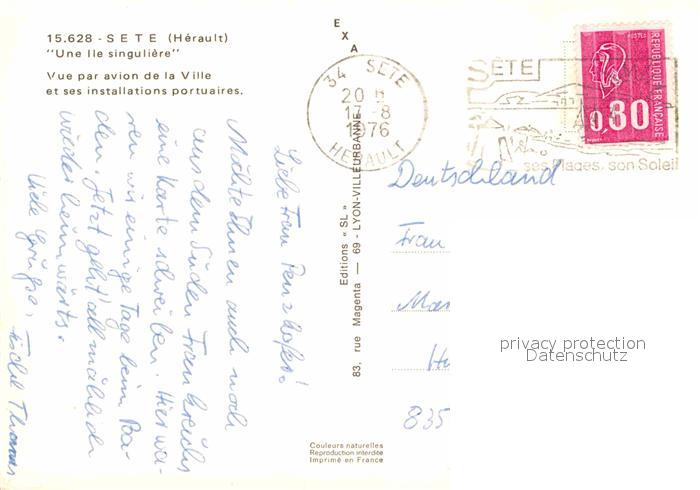 15.628 - SETE (Hérault)
"Une Ile singulière"
Vue par avion de la Ville
et ses installations portuaires.
EXA
34 SETE
20 H
17 - 8
1976
HERAULT
SÈTE
ses Plages, son Soleil
POSTES
REPUBLIQUE FRANÇAISE
0,80
Liebe Frau
Möchte Ihnen auch noch
aus dem Süden Frankreichs
eine Karte schreiben. Hier wa-
ren wir einige Tage beim Ba-
den. Jetzt geht's allmählich
wieder heimwärts.
Viele Grüße,
Editions "SL"
83, rue Magenta — 69 - LYON-VILLEURBANNE
Deutschland
Frau
835
privacy protection
Datenschutz
Couleurs naturelles
Reproduction interdite
Imprimé en France